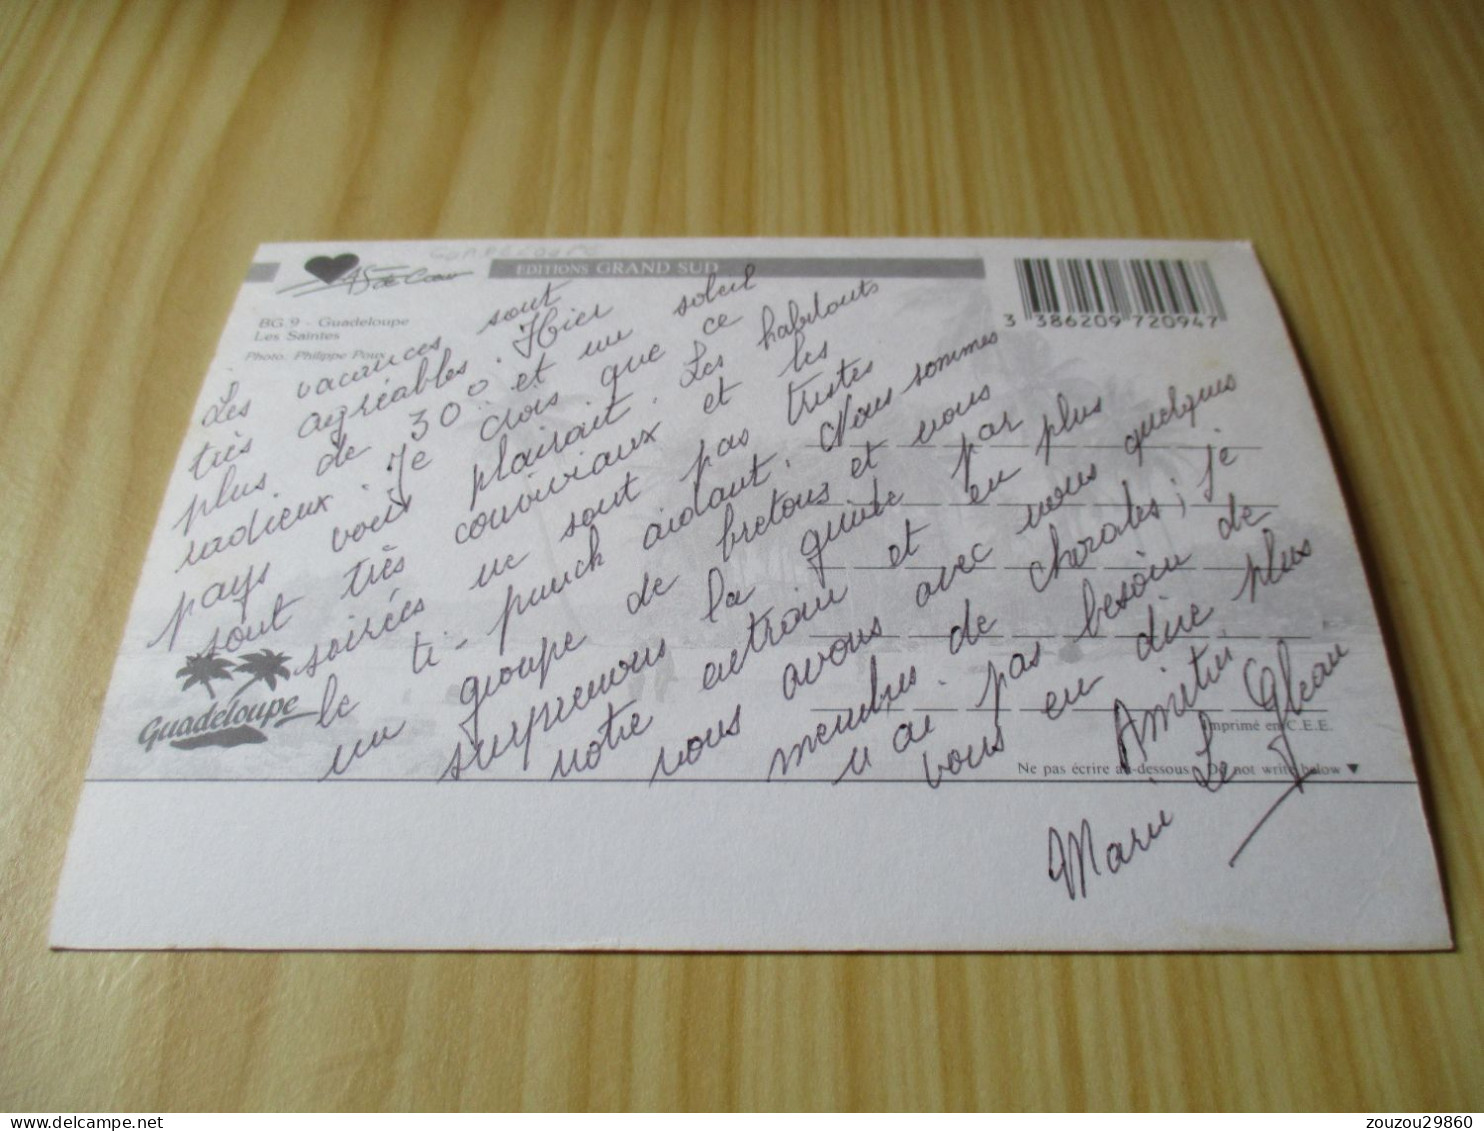 GUADELOUPE
AS de Cœur
EDITIONS GRAND SUD
BG.9 - Guadeloupe
Les Saintes
Photo. Philippe Poux
3 386209 720947
Les vacances sont
très agréables. Hier
plus de 30° et un soleil
radieux. Je crois que ce
pays vous plairait. Les habitants
sont très conviviaux et les
soirées ne sont pas tristes
le ti-punch aidant. Nous sommes
un groupe de bretons et nous
surprenons la guide par
notre entrain et en plus
nous avons avec nous quelques
membres de chorales ; je
n'ai pas besoin de
vous en dire plus
Amitiés
Marie Le
Guadeloupe
Imprimé en C.E.E.
Ne pas écrire au-dessous Do not write below ▼
zouzou29860